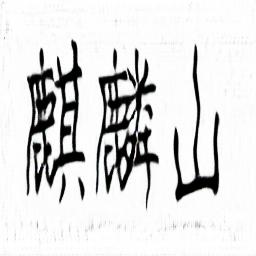 麒麟山